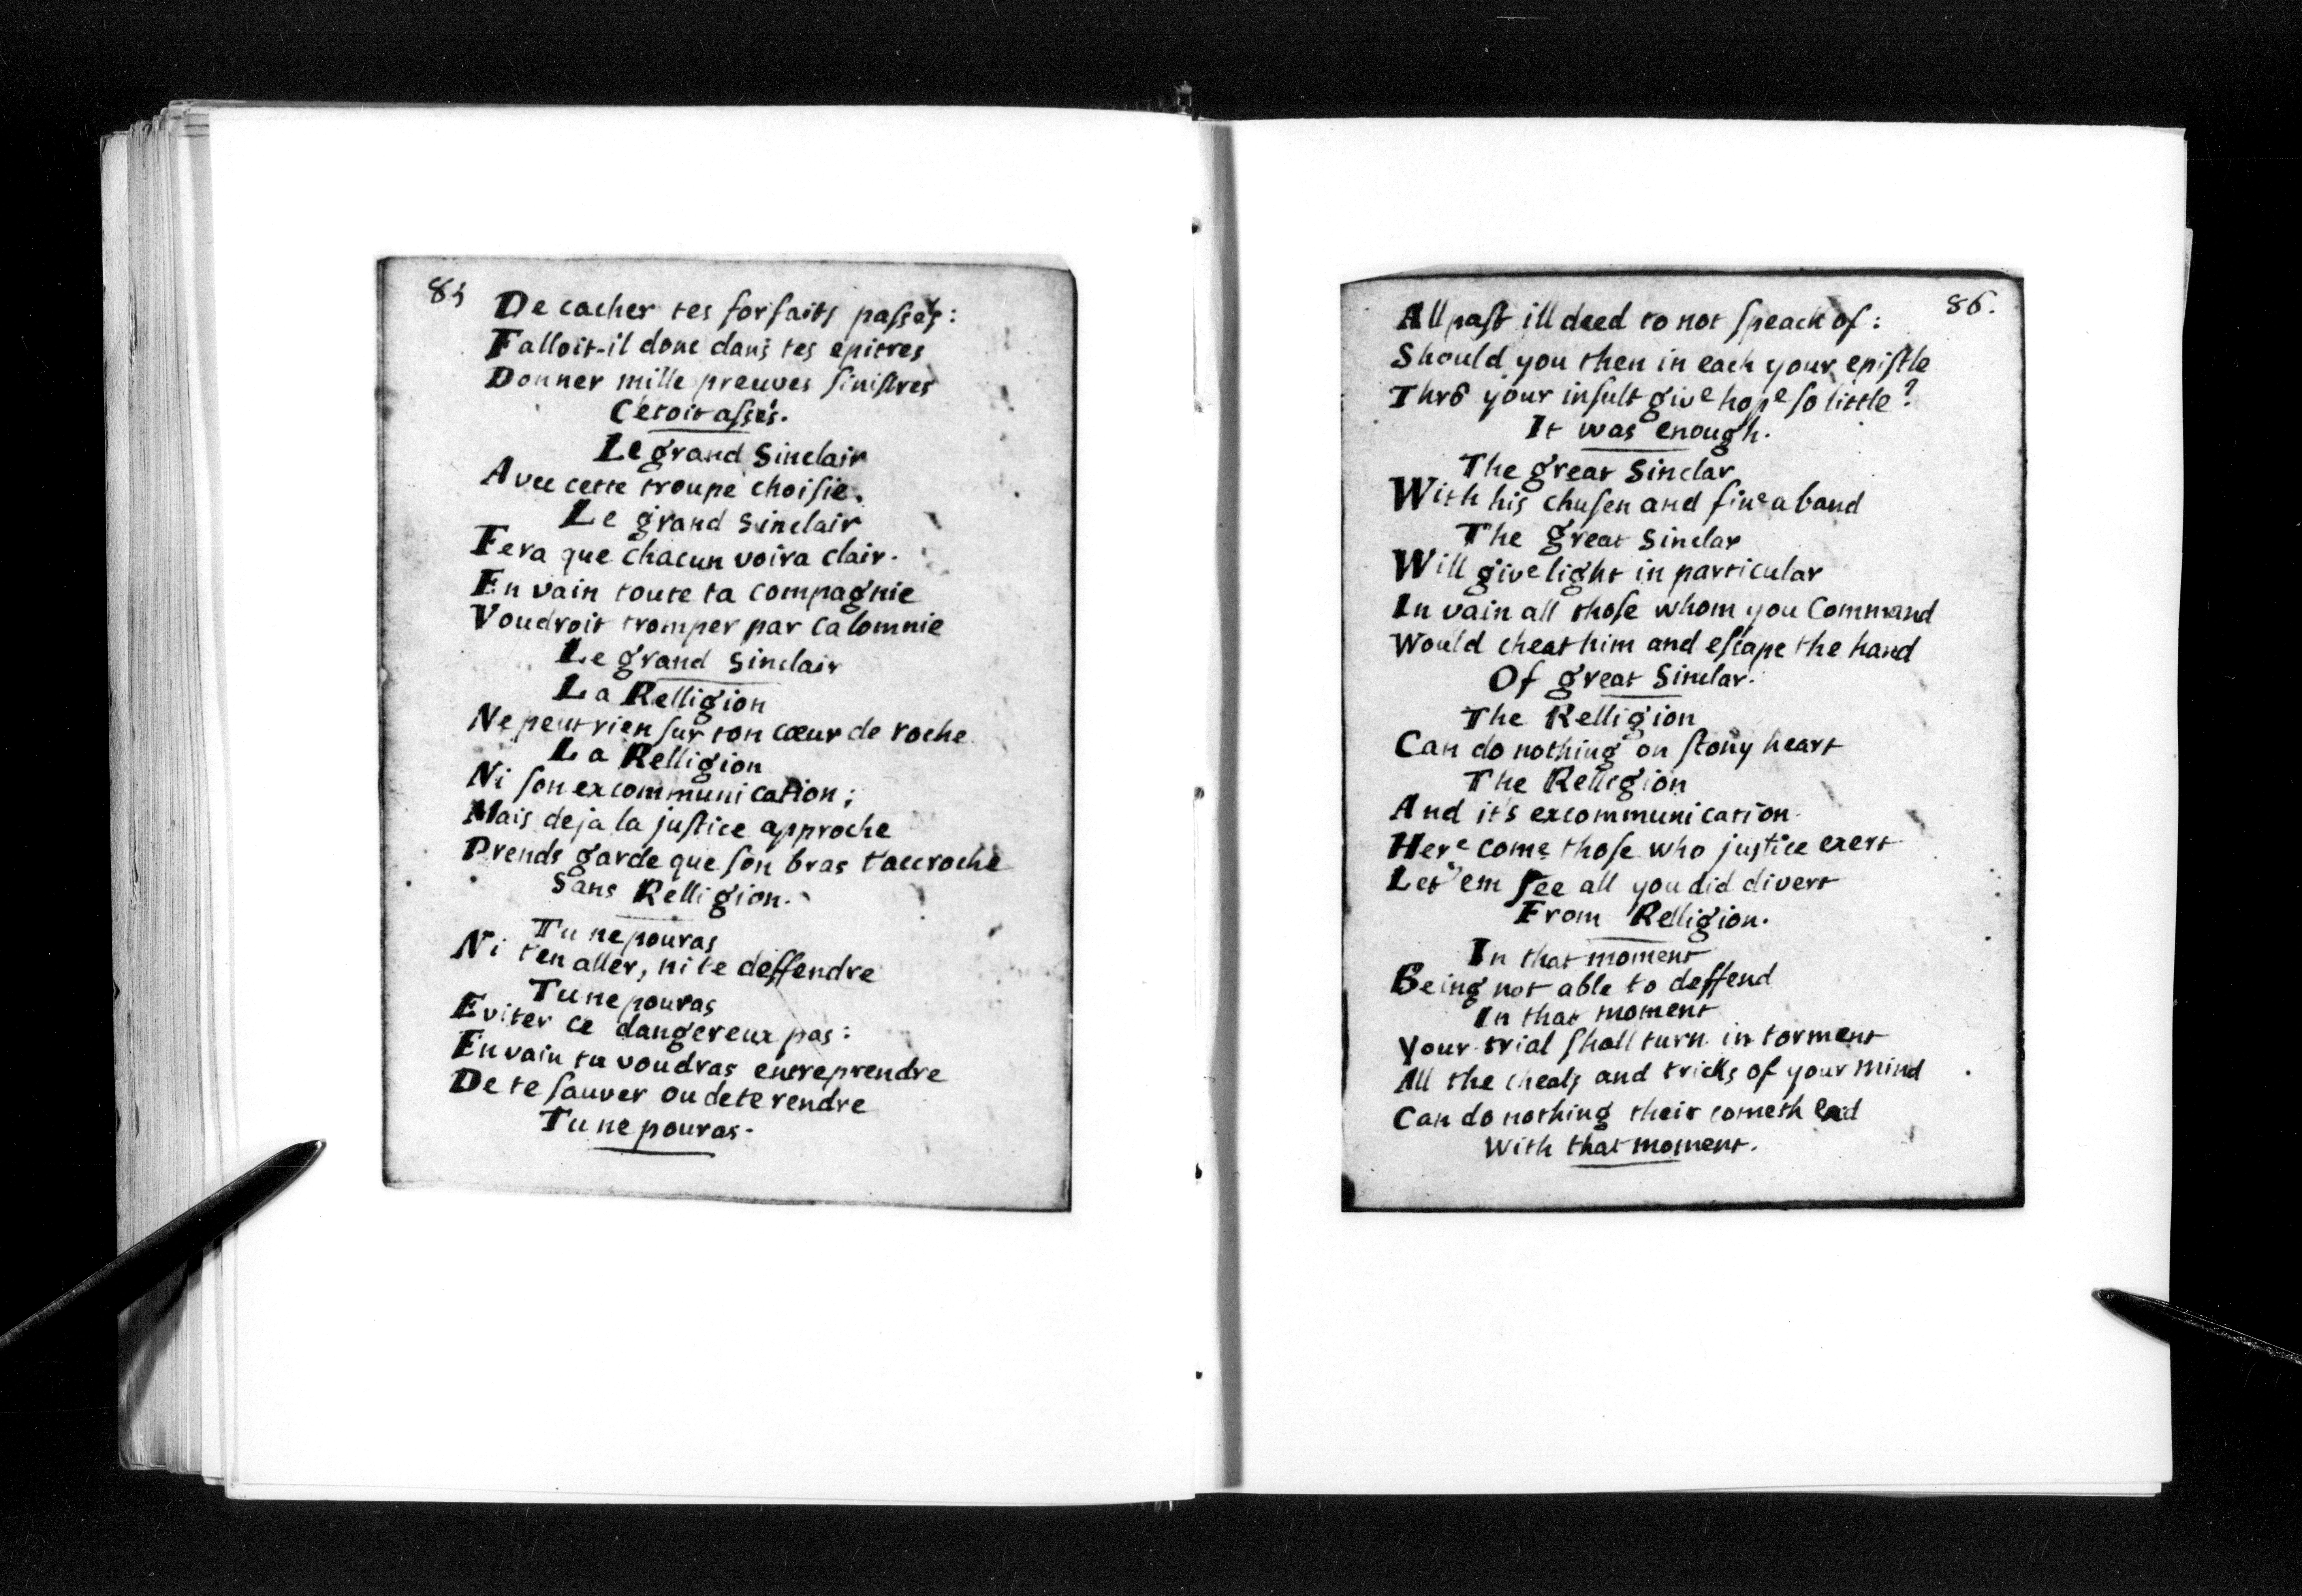 85
De cacher tes forfaits passés:
Falloit-il donc dans tes epitres
Donner mille preuves sinistres
C'étoit assés.
Le grand Sinclair
Avec cette troupe choisie.
Le grand Sinclair
Fera que chacun voira clair.
En vain toute ta compagnie
Voudroit tromper par calomnie
Le grand Sinclair
La Relligion
Ne peut rien sur ton cœur de roche
La Relligion
Ni son excommunication;
Mais deja la justice approche
Prends garde que son bras t'accroche
Sans Relligion.
Tu ne pouras
Ni t'en aller, ni te deffendre
Tu ne pouras
Eviter ce dangereux pas:
En vain tu voudras entreprendre
De te sauver ou de te rendre
Tu ne pouras.
86.
All past ill deed to not speack of:
Should you then in each your epistle
Thrô your insult give hope so little?
It was enough.
The great Sinclar
With his chusen and fine a band
The great Sinclar
Will give light in particular
In vain all those whom you Command
Would cheat him and escape the hand
Of great Sinclar.
The Relligion
Can do nothing on stony heart
The Relligion
And it's excommunication.
Here come those who justice exert
Let 'em see all you did divert
From Relligion.
In that moment
Being not able to deffend
In that moment
Your trial shall turn in torment
All the cheats and tricks of your mind
Can do nothing their cometh
With that moment.